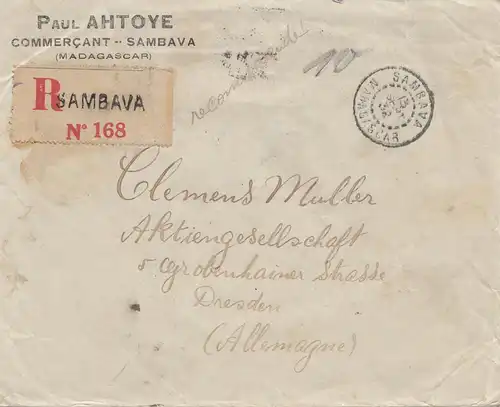 PAUL AHTOYE
COMMERÇANT -- SAMBAVA
(MADAGASCAR)
R SAMBAVA
N° 168
recommandé!
10
SAMBAVA
MADAGASCAR
Clemens Muller
Aktiengesellschaft
5 Grobenhainer strasse
Dresden
(Allemagne)